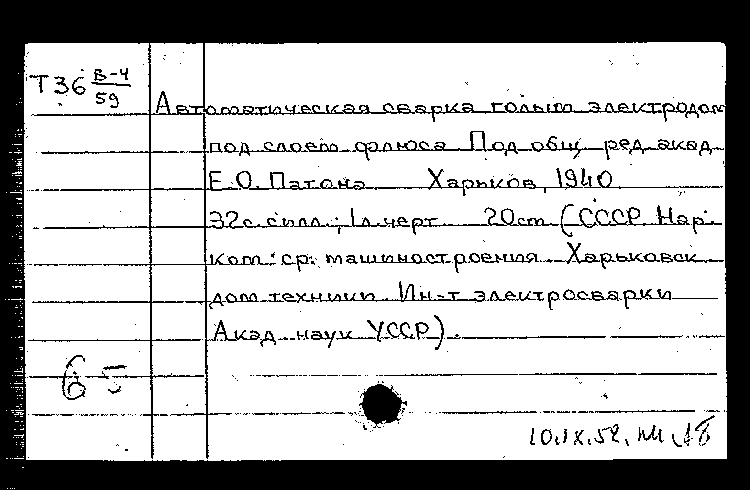 Т36 В-4/59
Автоматическая сварка голым электродом
под слоем флюса Под общ. ред. акад.
Е.О. Патона Харьков, 1940.
32с. с илл.; 1л. черт. 20см (СССР. Нар.
ком. ср. машиностроения. Харьковск.
дом техники. Ин-т электросварки
Акад. наук УССР).
65
10.IX.52.